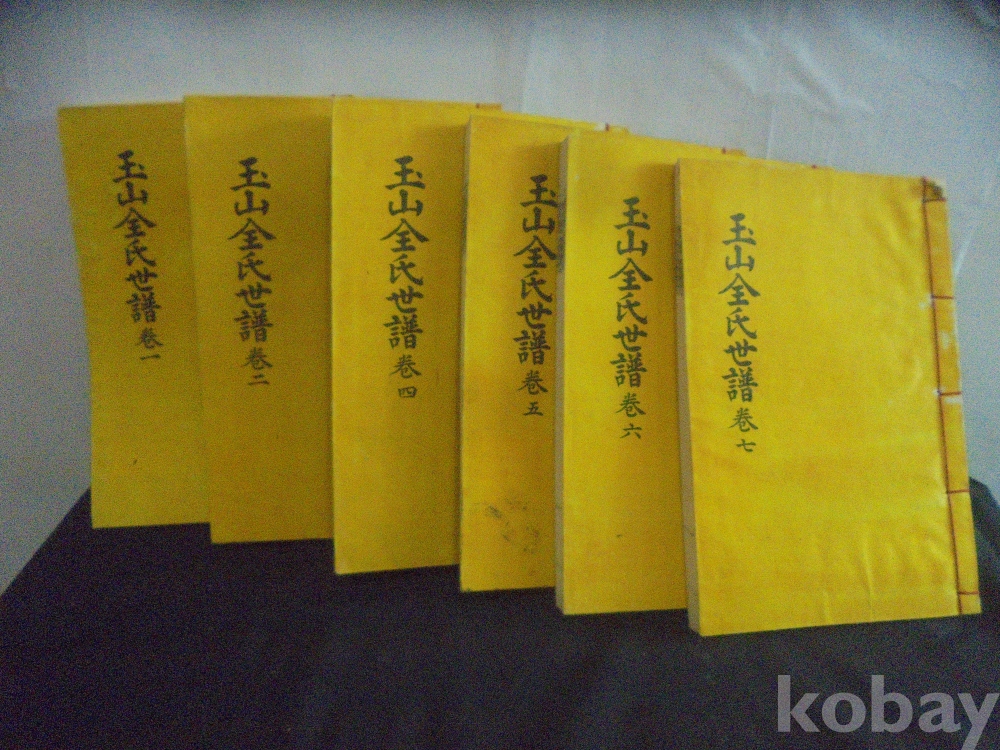 玉山全氏世譜 卷一
玉山全氏世譜 卷二
玉山全氏世譜 卷四
玉山全氏世譜 卷五
玉山全氏世譜 卷六
玉山全氏世譜 卷七
kobay